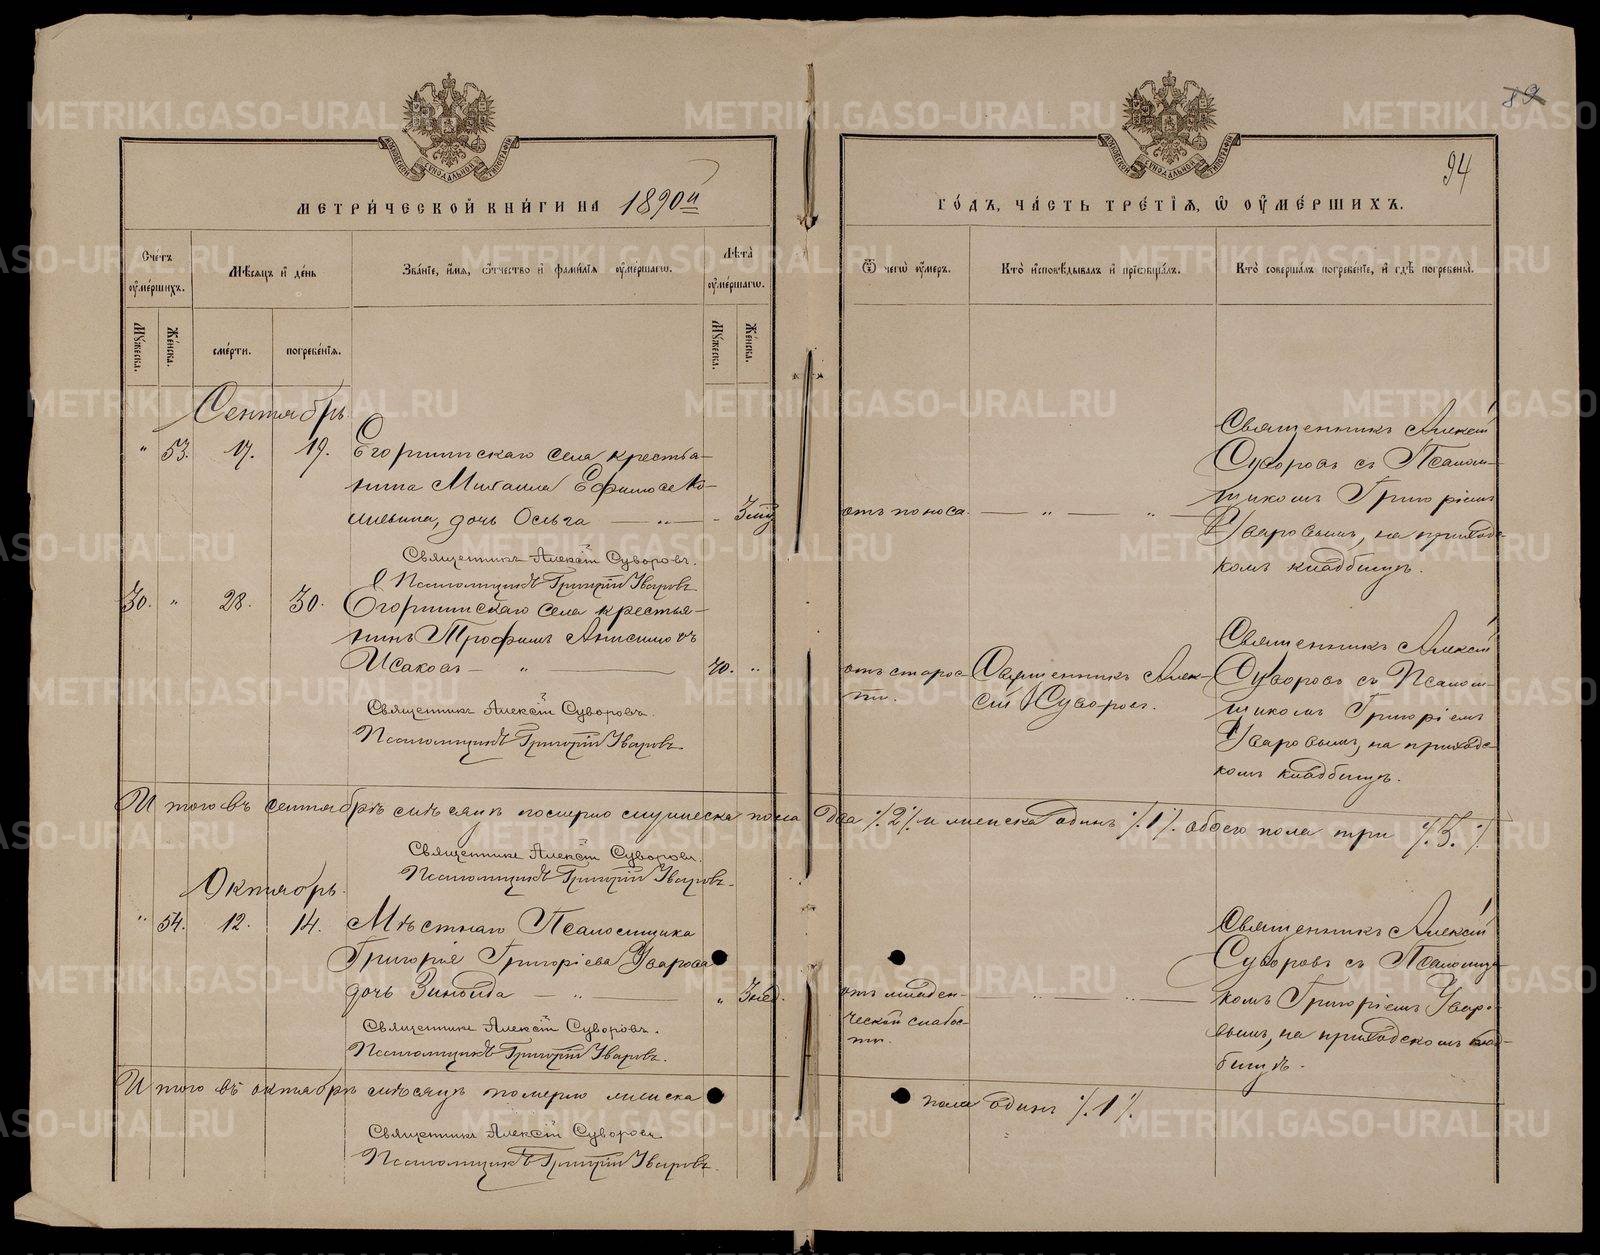 METRIKI.GASO-URAL.RU
МОСКОВСКОЙ СѴНОДАЛЬНОЙ ТИПОГРАФІИ
МОСКОВСКОЙ СѴНОДАЛЬНОЙ ТИПОГРАФІИ
89
94
МЕТРИ́ЧЕСКОЙ КНИ́ГИ НА 1890й
ГО́ДЪ, ЧА́СТЬ ТРЕ́ТІѦ, Ѽ ОУ҆МЕ́РШИХЪ.
Сче́тъ оу҆ме́ршихъ.
Мѣ́сяцъ и҆ де́нь
Зва́нїе, и҆́мѧ, ѻ҆́тчество и҆ фамі́лїѧ оу҆ме́ршагѡ.
Лѣ̑та оу҆ме́ршагѡ.
Ѿ чегѡ̀ оу҆́меръ.
Кто̀ и҆сповѣ́дывалъ и҆ прїѡбща́лъ.
Кто̀ соверша́лъ погребе́нїе, и҆ гдѣ̀ погребены̀.
Му́жеска.
Же́нска.
сме́рти.
погребе́нїѧ.
Му́жеска.
Же́нска.
Сентябрь
" 53. 17. 19. Егоршинскаго села крестья-
нина Михаила Ефимова Ко-
дочь Ольга — " —
отъ поноса. — " — " —
Священникъ Алексій
Суворовъ съ Псалом-
щикомъ Григоріемъ
Уваровымъ, на приходс-
комъ кладбищѣ.
Священникъ Алексій Суворовъ.
Псаломщикъ Григорій Уваровъ.
30. " 28. 30. Егоршинскаго села крестья-
нинъ Трофимъ Анисимовъ
Исаковъ — " — 70. "
отъ старос-
ти.
Священникъ Алек-
сій Суворовъ.
Священникъ Алексій
Суворовъ съ Псалом-
щикомъ Григоріемъ
Уваровымъ, на приходс-
комъ кладбищѣ.
Священникъ Алексій Суворовъ.
Псаломщикъ Григорій Уваровъ.
Итого въ сентябрѣ мѣсяцѣ померло мужеска пола два %2% и женска одинъ %1% обоего пола три %3.%
Священникъ Алексій Суворовъ.
Псаломщикъ Григорій Уваровъ.
Октябрь.
" 54. 12. 14. Мѣстнаго Псаломщика
Григорія Григоріева Уварова
дочь Зинаида — " — " 3 нед.
отъ младен-
ческой слабос-
ти.
— " — " —
Священникъ Алексій
Суворовъ съ Псаломщи-
комъ Григоріемъ Уваро-
вымъ, на приходскомъ клад-
бищѣ.
Священникъ Алексій Суворовъ.
Псаломщикъ Григорій Уваровъ.
Итого въ октябрѣ мѣсяцѣ померло женска
пола одинъ %1%.
Священникъ Алексій Суворовъ.
Псаломщикъ Григорій Уваровъ.